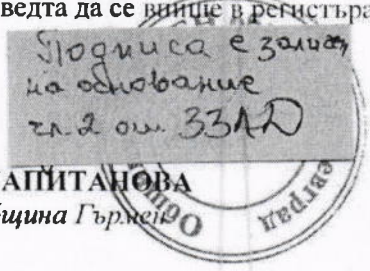 ведта да се впише в регистъра
Подписа е залич
на основание
чл. 2 от ЗЗЛД
АПИТАНОВА
бщина Гърмен